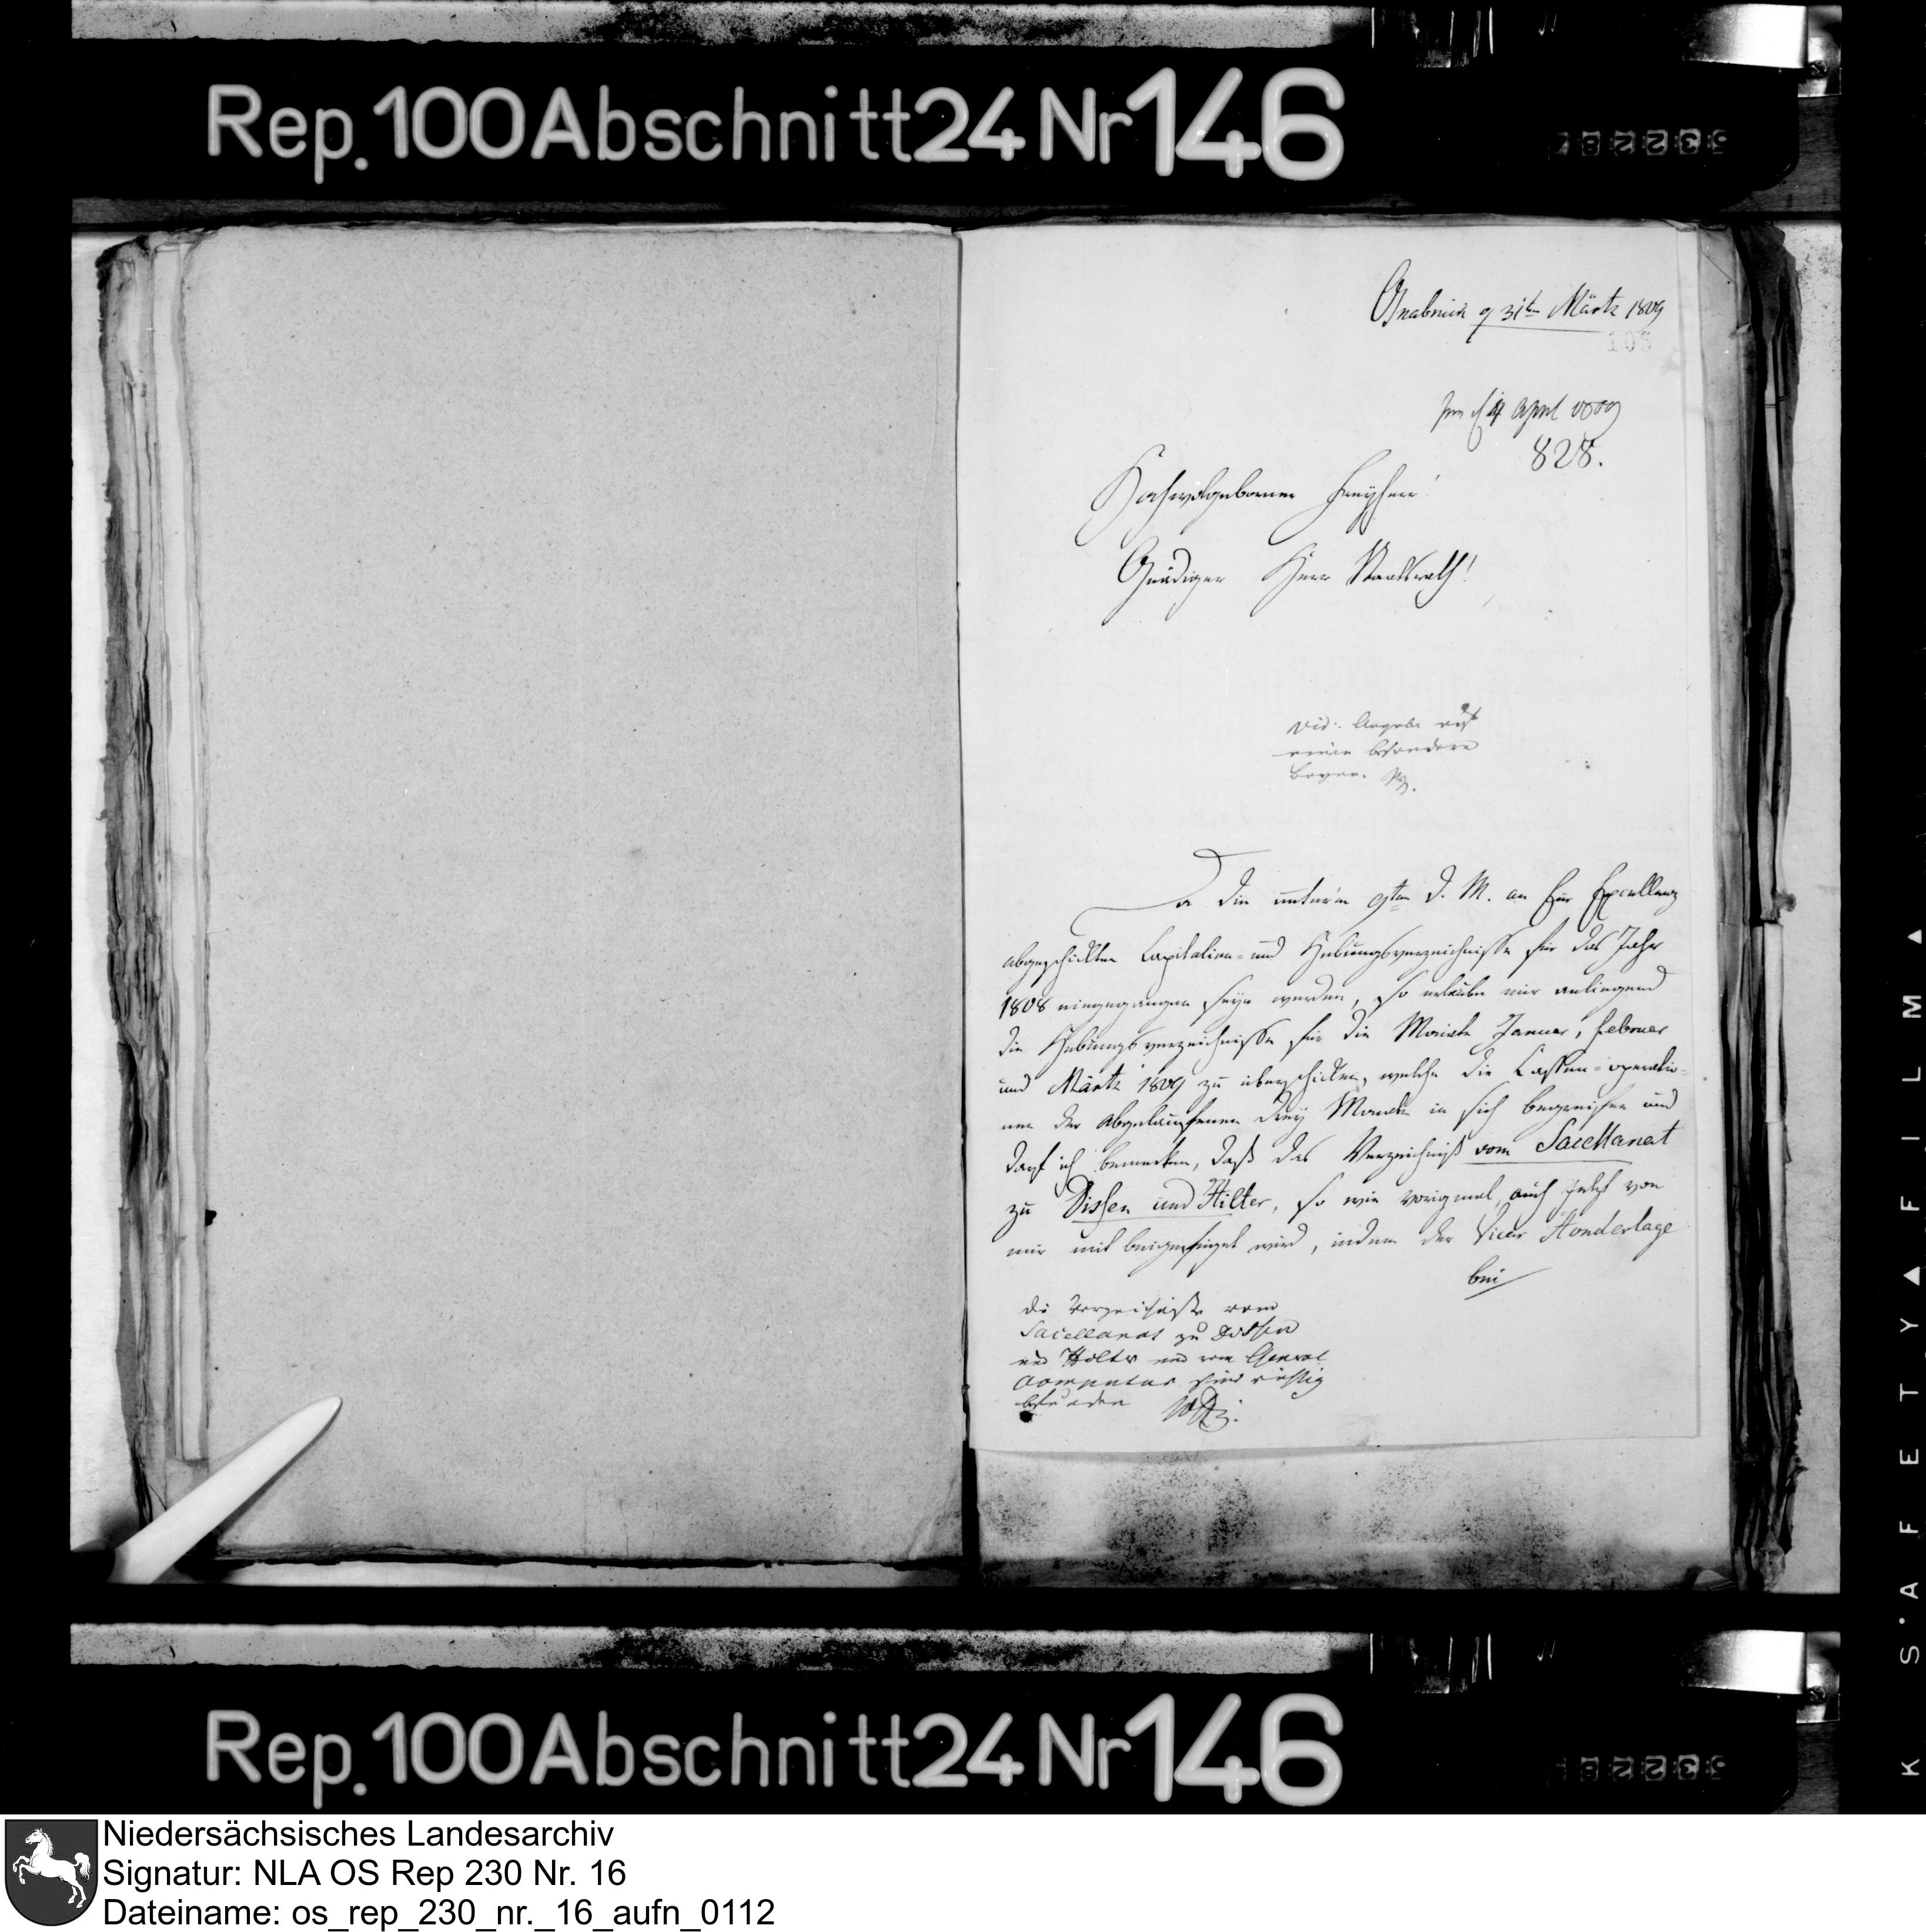 Rep. 100 Abschnitt 24 Nr 146
Osnabrück d 31t März 1809
105
den 4 April 1809
828.
Hochwolgeborner Freyherr!
Gnädiger Herr Staatsrath!
vid: Angabe auf
einen besondern
Bogen.
Da die unterm 9ten d. M. an Eur Excellenz
abgeschickten Capitalien- und Hebungsverzeichnisse für das Jahr
1808 eingegangen seyn werden, so erlaube mir anliegend
die Hebungsverzeichnisse für die Monate Januar, Februar
und März 1809 zu überschicken, welche die Cassen-operatio-
nen der abgelaufenen drey Monate in sich begreifen und
darf ich bemerken, daß das Verzeichniß vom Sacellanat
zu Dissen und Hilter, so wie vorigmal, auch jetzt von
mir mit beigefüget wird, indem der Vicar Honderlage
bei
die Verzeichniße vom
Sacellanat zu Dissen
und Hilter und vom General
sind richtig
befunden
Rep. 100 Abschnitt 24 Nr 146
K S'AFETY FILM
Niedersächsisches Landesarchiv
Signatur: NLA OS Rep 230 Nr. 16
Dateiname: os_rep_230_nr._16_aufn_0112